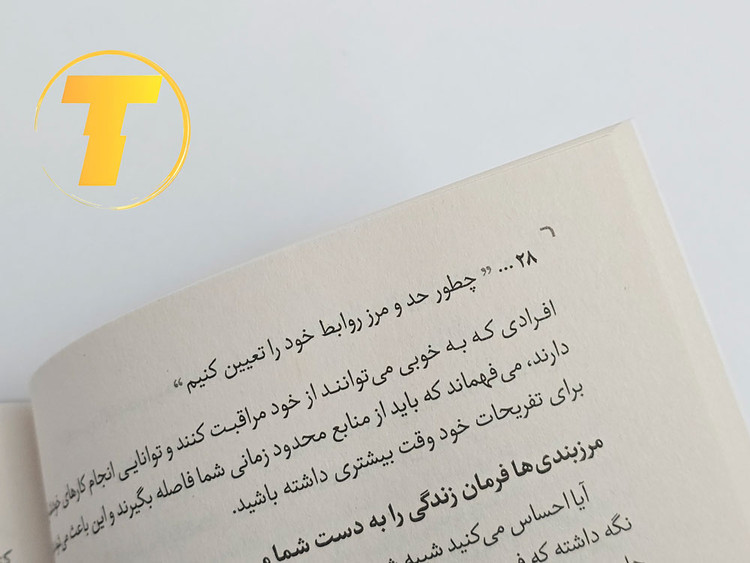 T
۲۸ ... ” چطور حد و مرز روابط خود را تعیین کنیم “
افرادی که به خوبی می‌توانند از خود مراقبت کنند و توانایی انجام کارهای
دارند، می‌فهماند که باید از منابع محدود زمانی شما فاصله بگیرند و این باعث
برای تفریحات خود وقت بیشتری داشته باشید.
مرزبندی‌ها فرمان زندگی را به دست شما
آیا احساس می‌کنید شبیه
نگه داشته که